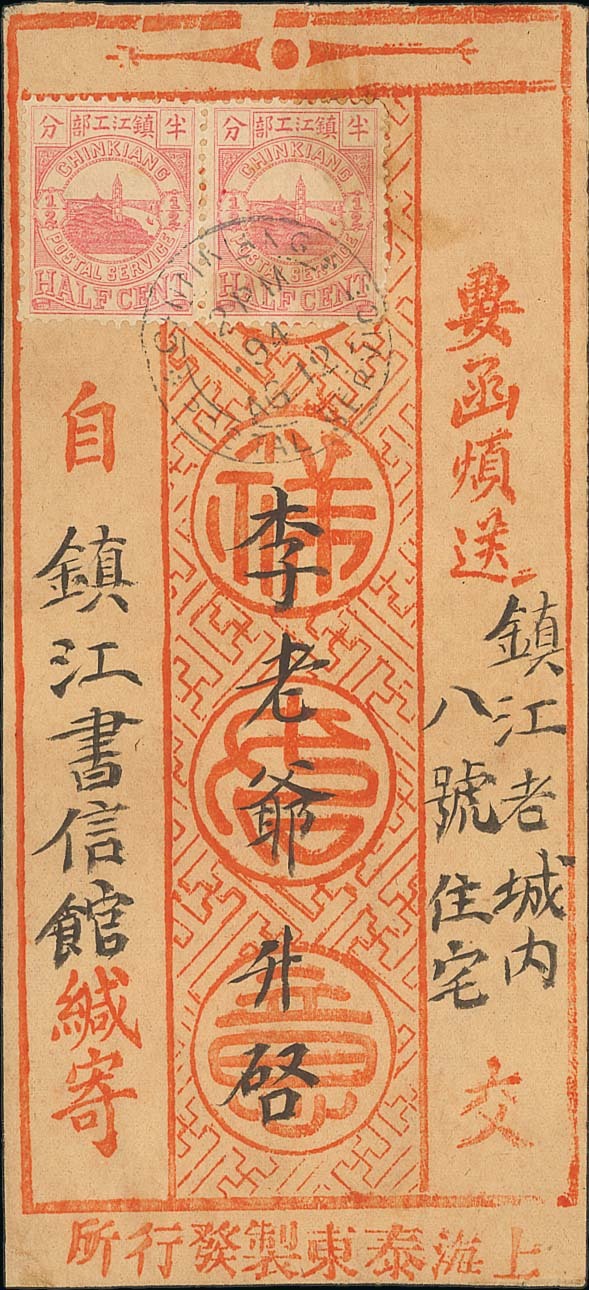 分 部工江鎮 半
CHINKIANG
1/2 1/2
POSTAL SERVICE
HALF CENT
分 部工江鎮 半
CHINKIANG
1/2 1/2
POSTAL SERVICE
HALF CENT
CHINKIANG
2PM
94
AG 12
POSTAL SERVICE
要函煩送
鎮江老城內
八號住宅
交
李老爺升啓
自
鎮江書信館
緘寄
上海泰東製發行所